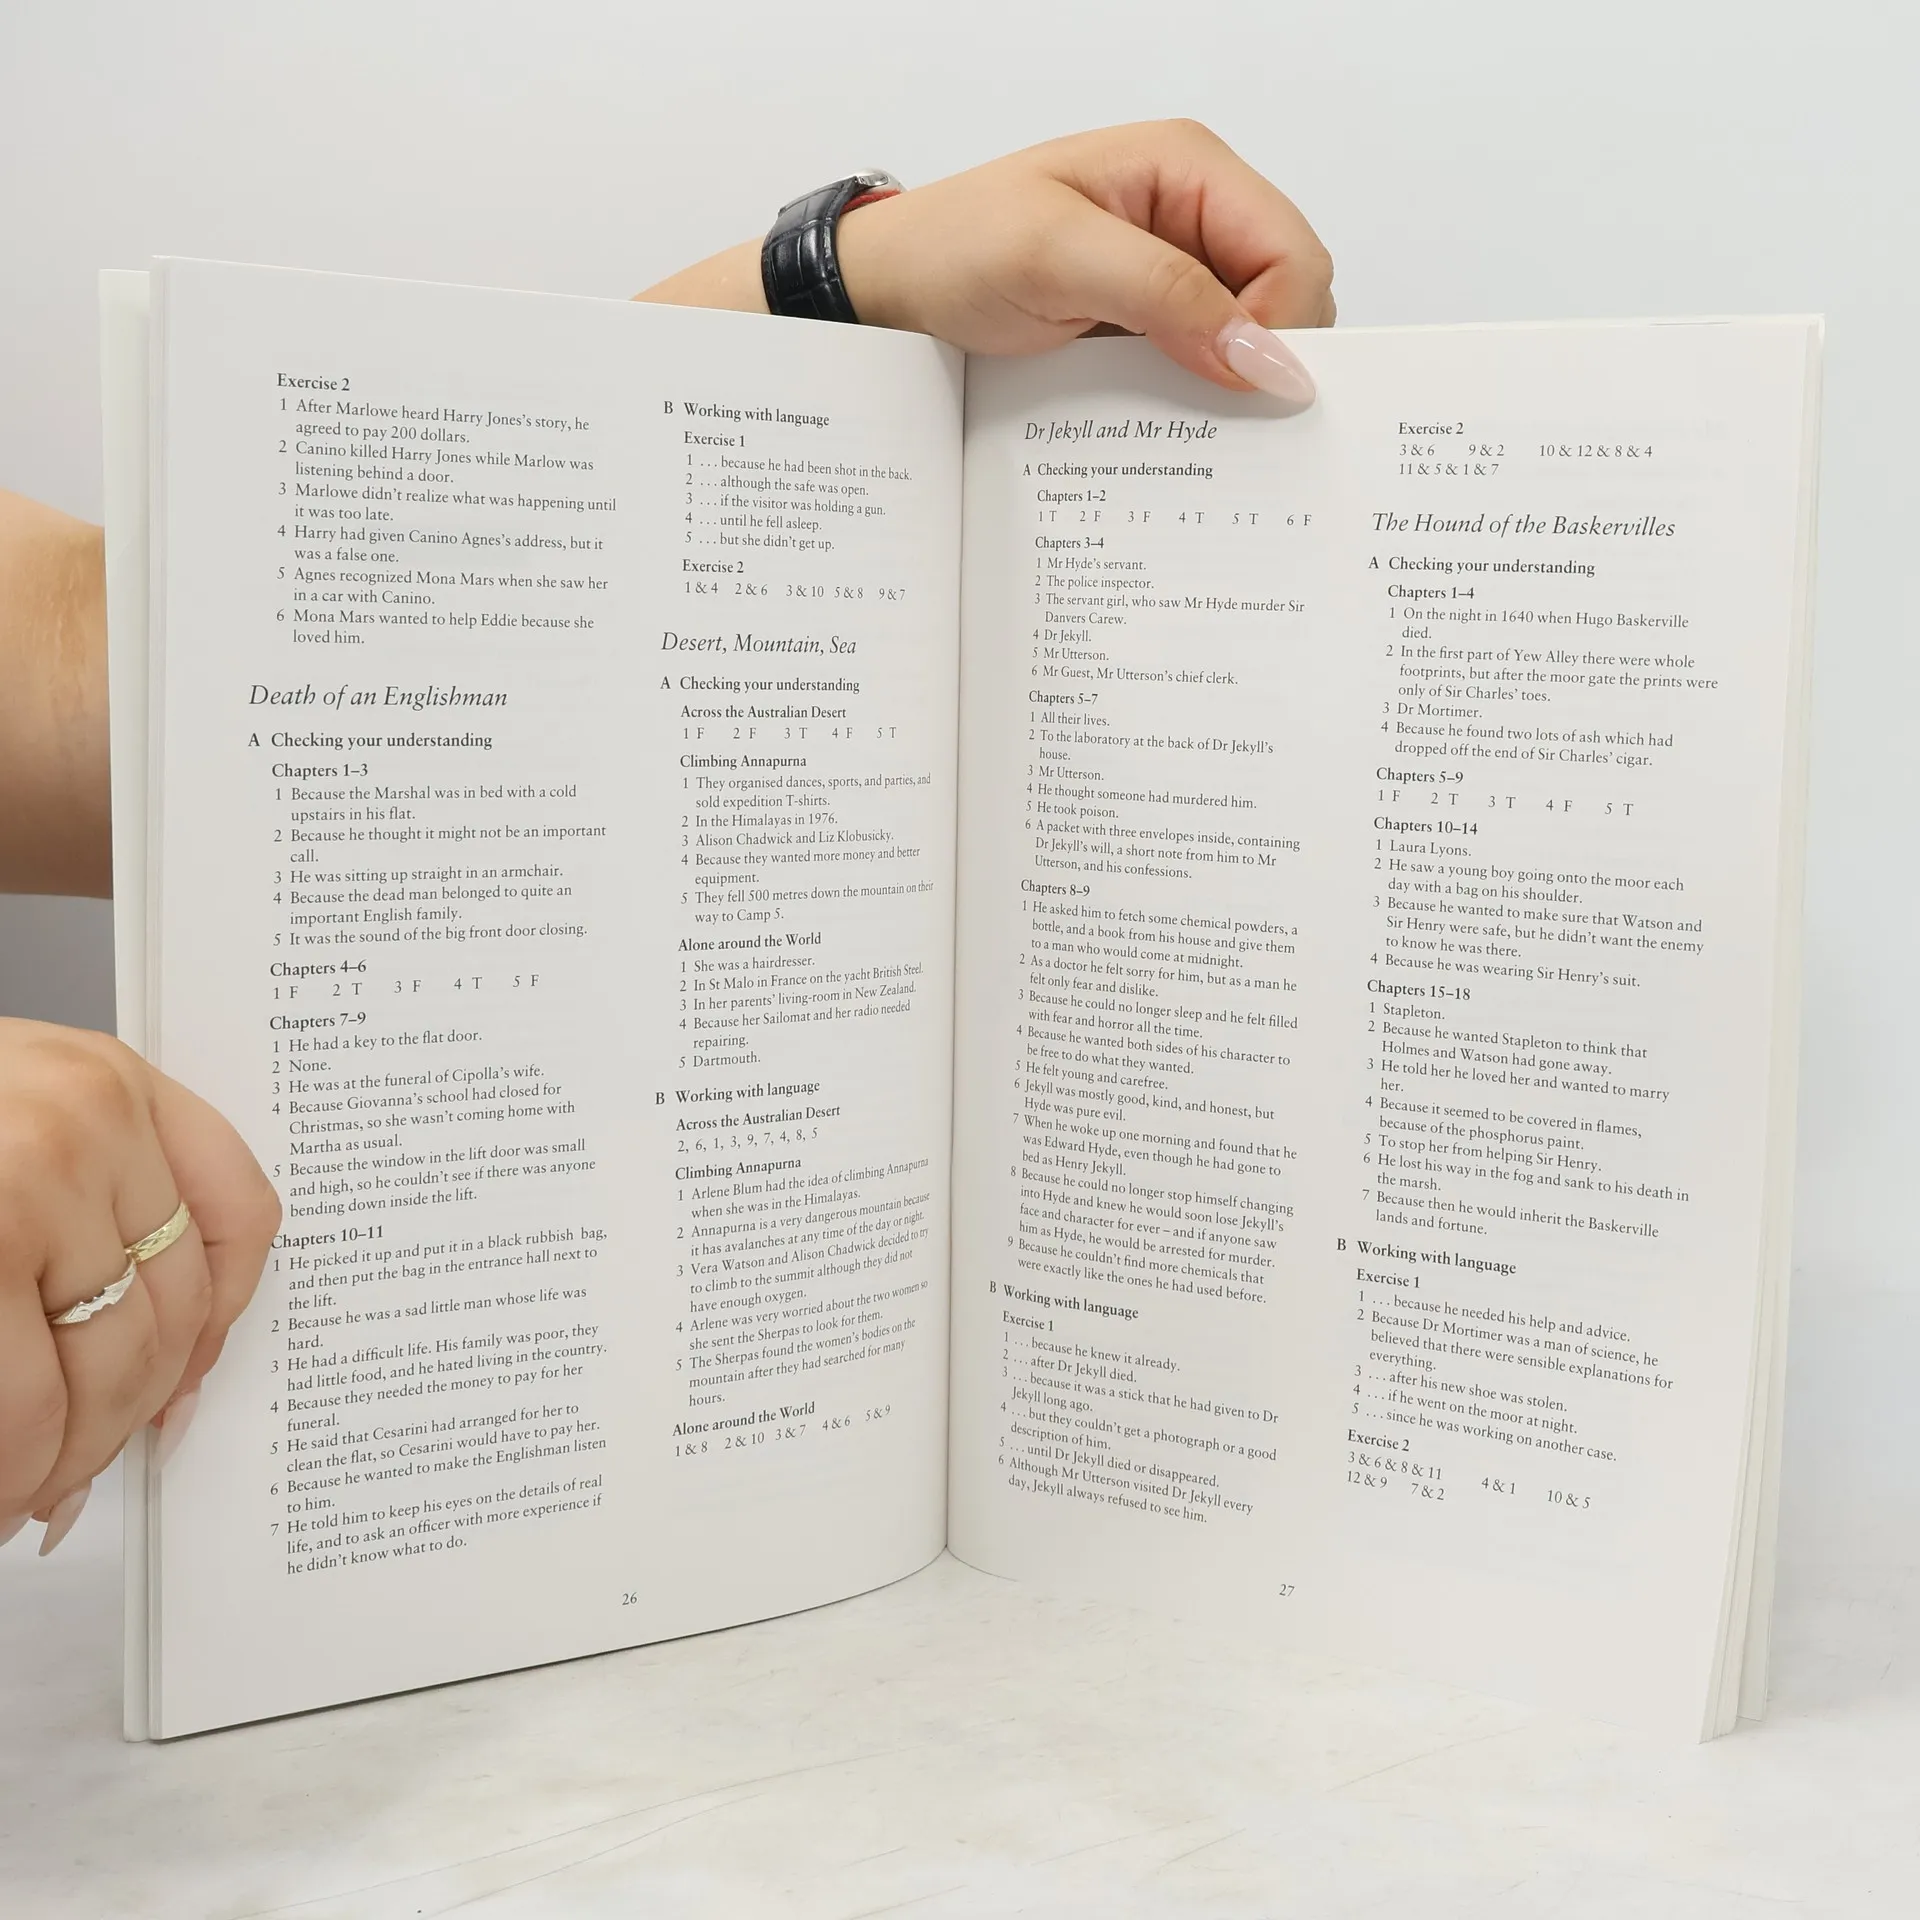 Exercise 2
1 After Marlowe heard Harry Jones's story, he
agreed to pay 200 dollars.
2 Canino killed Harry Jones while Marlow was
listening behind a door.
3 Marlowe didn't realize what was happening until
it was too late.
4 Harry had given Canino Agnes's address, but it
was a false one.
5 Agnes recognized Mona Mars when she saw her
in a car with Canino.
6 Mona Mars wanted to help Eddie because she
loved him.
Death of an Englishman
A Checking your understanding
Chapters 1–3
1 Because the Marshal was in bed with a cold
upstairs in his flat.
2 Because he thought it might not be an important
call.
3 He was sitting up straight in an armchair.
4 Because the dead man belonged to quite an
important English family.
5 It was the sound of the big front door closing.
Chapters 4–6
1 F 2 T 3 F 4 T 5 F
Chapters 7–9
1 He had a key to the flat door.
2 None.
3 He was at the funeral of Cipolla's wife.
4 Because Giovanna's school had closed for
Christmas, so she wasn't coming home with
Martha as usual.
5 Because the window in the lift door was small
and high, so he couldn't see if there was anyone
bending down inside the lift.
Chapters 10–11
1 He picked it up and put it in a black rubbish bag,
and then put the bag in the entrance hall next to
the lift.
2 Because he was a sad little man whose life was
hard.
3 He had a difficult life. His family was poor, they
had little food, and he hated living in the country.
4 Because they needed the money to pay for her
funeral.
5 He said that Cesarini had arranged for her to
clean the flat, so Cesarini would have to pay her.
6 Because he wanted to make the Englishman listen
to him.
7 He told him to keep his eyes on the details of real
life, and to ask an officer with more experience if
he didn't know what to do.
B Working with language
Exercise 1
1 ... because he had been shot in the back.
2 ... although the safe was open.
3 ... if the visitor was holding a gun.
4 ... until he fell asleep.
5 ... but she didn't get up.
Exercise 2
1 & 4 2 & 6 3 & 10 5 & 8 9 & 7
Desert, Mountain, Sea
A Checking your understanding
Across the Australian Desert
1 F 2 F 3 T 4 F 5 T
Climbing Annapurna
1 They organised dances, sports, and parties, and
sold expedition T-shirts.
2 In the Himalayas in 1976.
3 Alison Chadwick and Liz Klobusicky.
4 Because they wanted more money and better
equipment.
5 They fell 500 metres down the mountain on their
way to Camp 5.
Alone around the World
1 She was a hairdresser.
2 In St Malo in France on the yacht British Steel.
3 In her parents' living-room in New Zealand.
4 Because her Sailomat and her radio needed
repairing.
5 Dartmouth.
B Working with language
Across the Australian Desert
2, 6, 1, 3, 9, 7, 4, 8, 5
Climbing Annapurna
1 Arlene Blum had the idea of climbing Annapurna
when she was in the Himalayas.
2 Annapurna is a very dangerous mountain because
it has avalanches at any time of the day or night.
3 Vera Watson and Alison Chadwick decided to try
to climb to the summit although they did not
have enough oxygen.
4 Arlene was very worried about the two women so
she sent the Sherpas to look for them.
5 The Sherpas found the women's bodies on the
mountain after they had searched for many
hours.
Alone around the World
1 & 8 2 & 10 3 & 7 4 & 6 5 & 9
26
Dr Jekyll and Mr Hyde
A Checking your understanding
Chapters 1–2
1 T 2 F 3 F 4 T 5 T 6 F
Chapters 3–4
1 Mr Hyde's servant.
2 The police inspector.
3 The servant girl, who saw Mr Hyde murder Sir
Danvers Carew.
4 Dr Jekyll.
5 Mr Utterson.
6 Mr Guest, Mr Utterson's chief clerk.
Chapters 5–7
1 All their lives.
2 To the laboratory at the back of Dr Jekyll's
house.
3 Mr Utterson.
4 He thought someone had murdered him.
5 He took poison.
6 A packet with three envelopes inside, containing
Dr Jekyll's will, a short note from him to Mr
Utterson, and his confessions.
Chapters 8–9
1 He asked him to fetch some chemical powders, a
bottle, and a book from his house and give them
to a man who would come at midnight.
2 As a doctor he felt sorry for him, but as a man he
felt only fear and dislike.
3 Because he could no longer sleep and he felt filled
with fear and horror all the time.
4 Because he wanted both sides of his character to
be free to do what they wanted.
5 He felt young and carefree.
6 Jekyll was mostly good, kind, and honest, but
Hyde was pure evil.
7 When he woke up one morning and found that he
was Edward Hyde, even though he had gone to
bed as Henry Jekyll.
8 Because he could no longer stop himself changing
into Hyde and knew he would soon lose Jekyll's
face and character for ever – and if anyone saw
him as Hyde, he would be arrested for murder.
9 Because he couldn't find more chemicals that
were exactly like the ones he had used before.
B Working with language
Exercise 1
1 ... because he knew it already.
2 ... after Dr Jekyll died.
3 ... because it was a stick that he had given to Dr
Jekyll long ago.
4 ... but they couldn't get a photograph or a good
description of him.
5 ... until Dr Jekyll died or disappeared.
6 Although Mr Utterson visited Dr Jekyll every
day, Jekyll always refused to see him.
Exercise 2
3 & 6 9 & 2 10 & 12 & 8 & 4
11 & 5 & 1 & 7
The Hound of the Baskervilles
A Checking your understanding
Chapters 1–4
1 On the night in 1640 when Hugo Baskerville
died.
2 In the first part of Yew Alley there were whole
footprints, but after the moor gate the prints were
only of Sir Charles' toes.
3 Dr Mortimer.
4 Because he found two lots of ash which had
dropped off the end of Sir Charles' cigar.
Chapters 5–9
1 F 2 T 3 T 4 F 5 T
Chapters 10–14
1 Laura Lyons.
2 He saw a young boy going onto the moor each
day with a bag on his shoulder.
3 Because he wanted to make sure that Watson and
Sir Henry were safe, but he didn't want the enemy
to know he was there.
4 Because he was wearing Sir Henry's suit.
Chapters 15–18
1 Stapleton.
2 Because he wanted Stapleton to think that
Holmes and Watson had gone away.
3 He told her he loved her and wanted to marry
her.
4 Because it seemed to be covered in flames,
because of the phosphorus paint.
5 To stop her from helping Sir Henry.
6 He lost his way in the fog and sank to his death in
the marsh.
7 Because then he would inherit the Baskerville
lands and fortune.
B Working with language
Exercise 1
1 ... because he needed his help and advice.
2 Because Dr Mortimer was a man of science, he
believed that there were sensible explanations for
everything.
3 ... after his new shoe was stolen.
4 ... if he went on the moor at night.
5 ... since he was working on another case.
Exercise 2
3 & 6 & 8 & 11 4 & 1 10 & 5
12 & 9 7 & 2
27